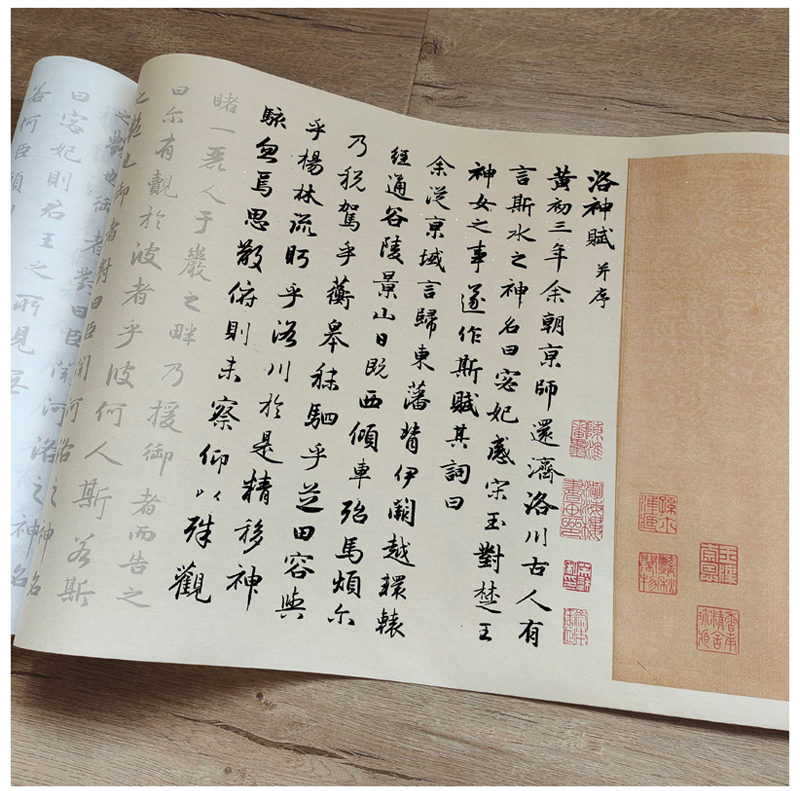 洛神賦 并序
黄初三年余朝京師還濟洛川古人有
言斯水之神名曰宓妃感宋玉對楚王
神女之事遂作斯賦其詞曰
余從京域言歸東藩背伊闕越轘轅
經通谷陵景山日既西傾車殆馬煩尔
乃税駕乎蘅皋秣駟乎芝田容與
乎楊林流眄乎洛川於是精移神
駭忽焉思散俯則未察仰以殊觀
睹一麗人于巖之畔乃援御者而告之
曰尔有覿於彼者乎彼何人斯若斯
之艷也御者對曰臣聞河洛之神名
曰宓妃則君王之所見